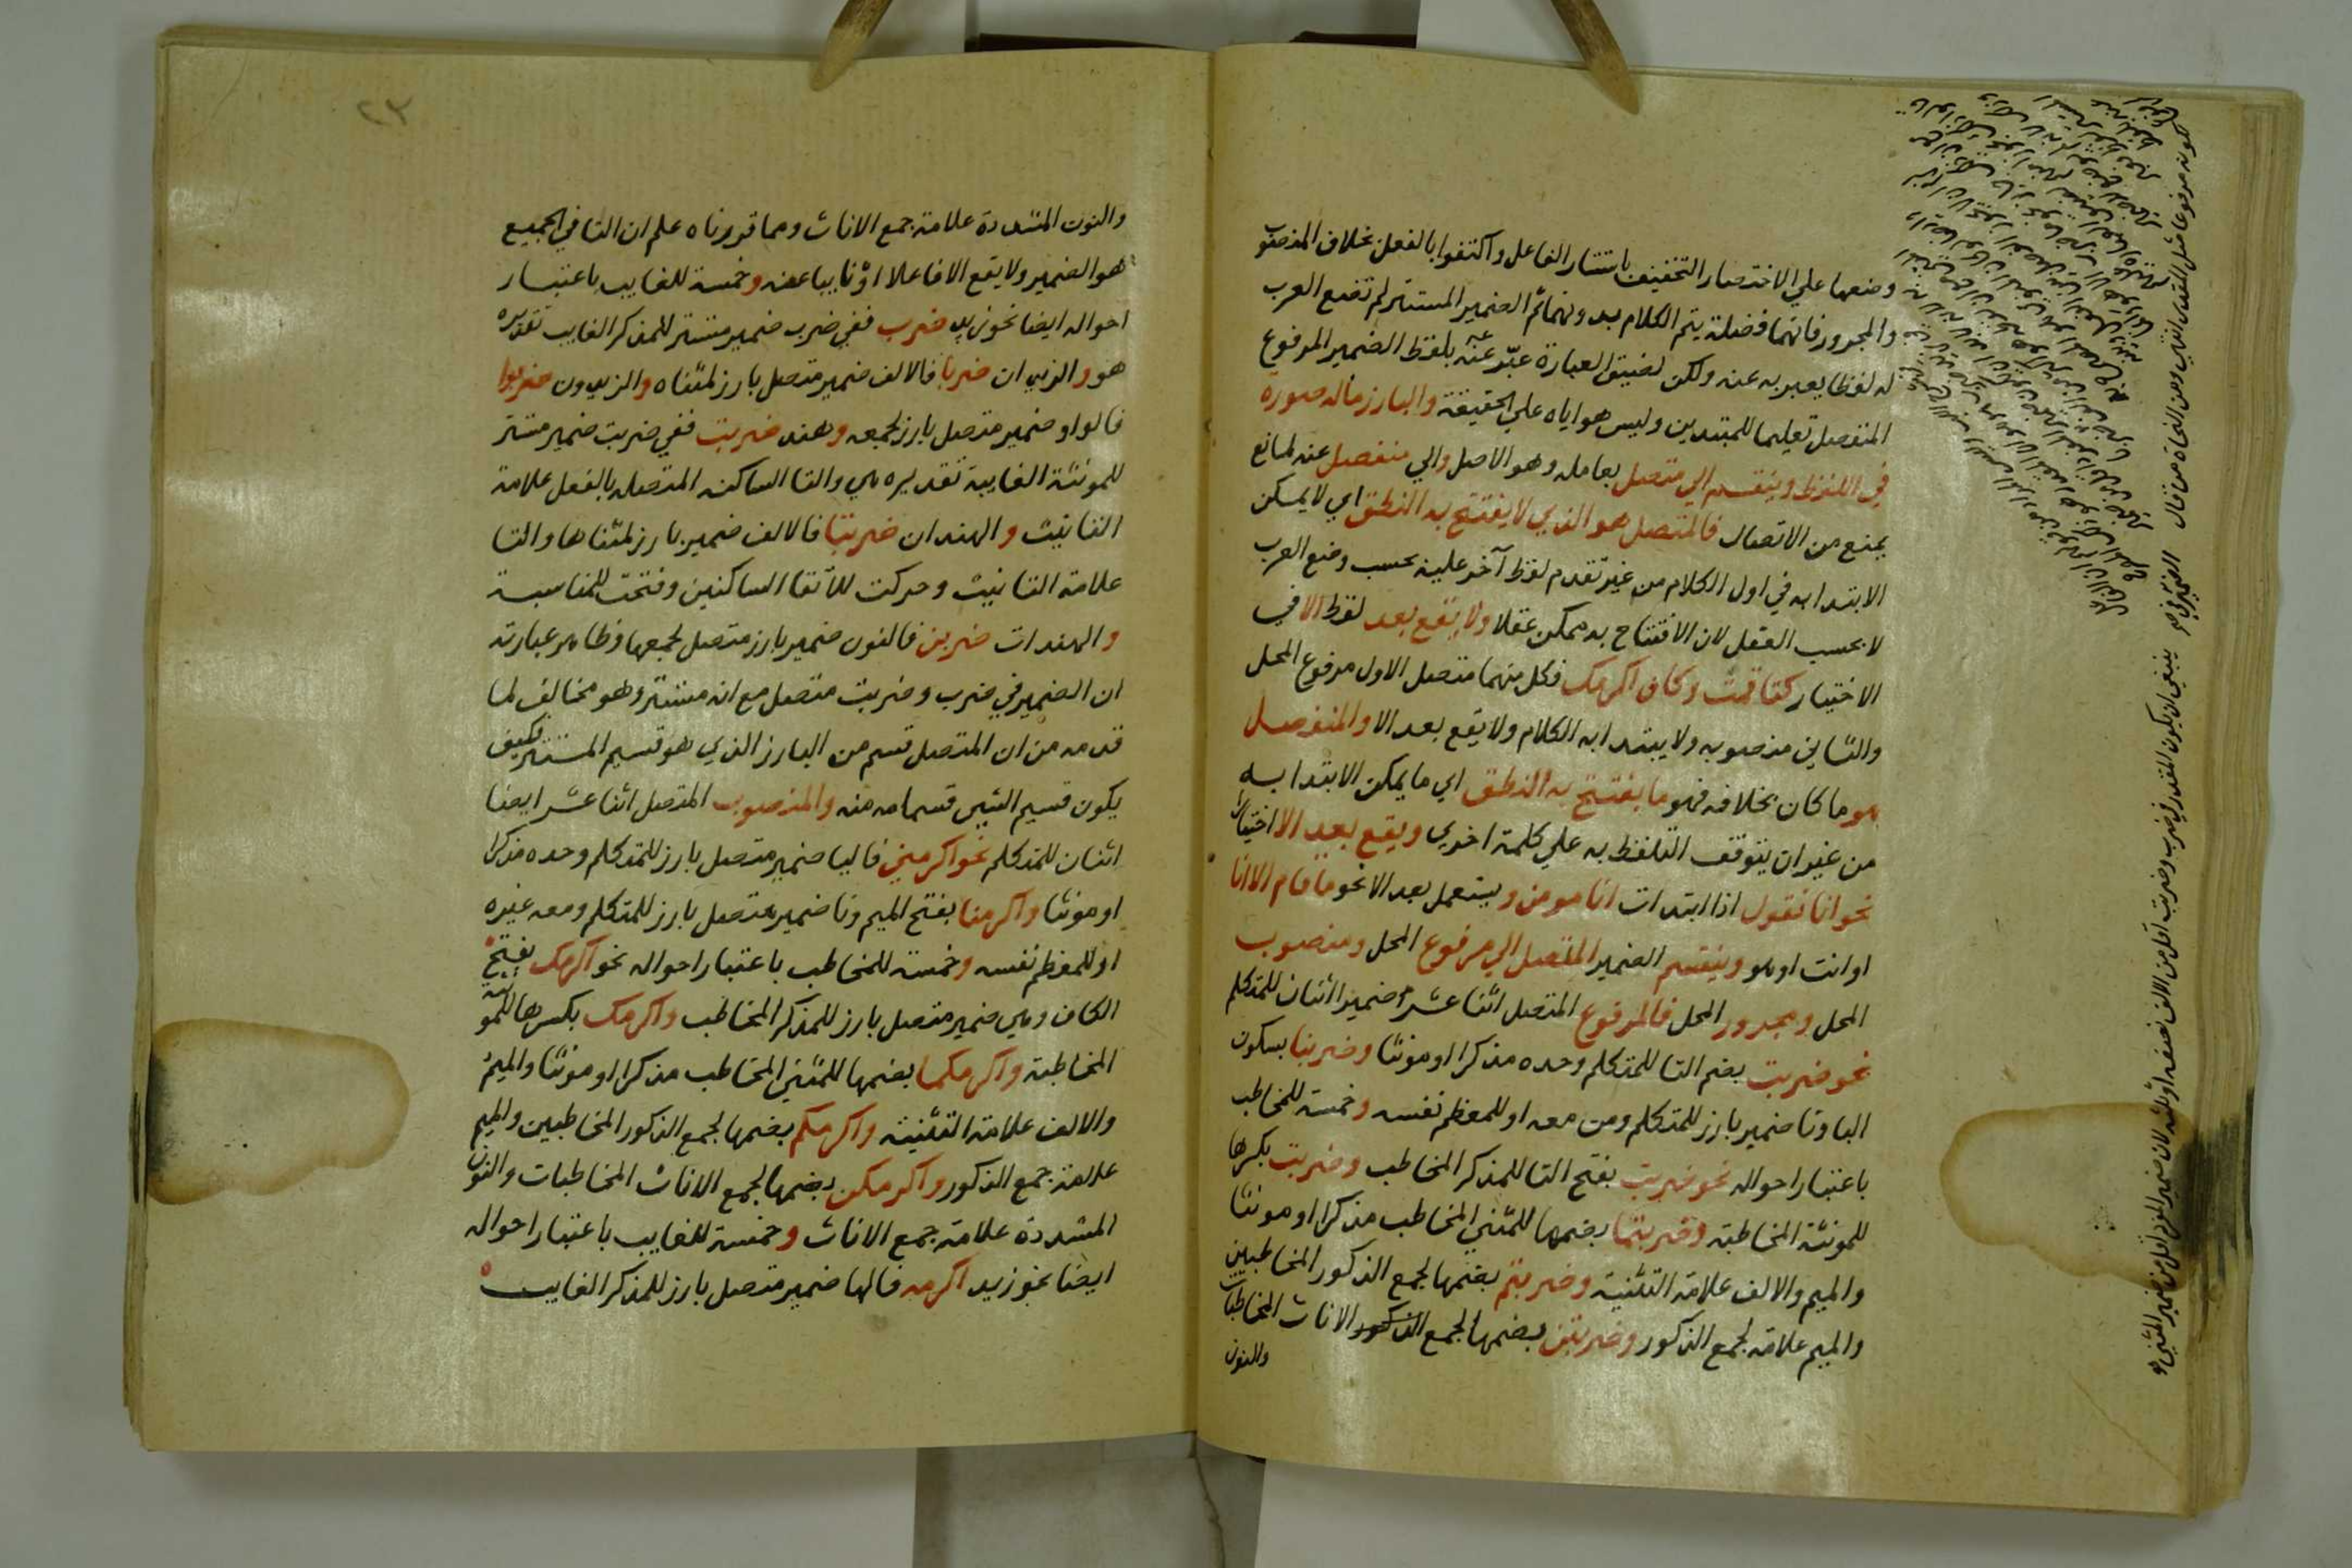 وضعها علي الاختصار التخفيف باستتار الفاعل واكتفوا بالفعل بخلاف المنصوب
والمجرور فانهما فضلة يتم الكلام بدونهما ثم الضمير المستتر لم تضع العرب
له لفظا يعبر به عنه ولكن لضيق العبارة عبّر عنه بلفظ الضمير المرفوع
المنفصل تعليما للمبتدين وليس هو اياه علي الحقيقة والبارز ماله صورة
في اللفظ وينقسم الي متصل بعامله وهو الاصل والي منفصل عنه لمانع
يمنع من الاتصال فالمتصل هو الذي لا يفتتح به النطق اي لا يمكن
الابتدا به في اول الكلام من غير تقدم لفظ آخر عليه بحسب وضع العرب
لا بحسب العقل لان الافتتاح به ممكن عقلا ولا يقع بعد لفظ الا في
الاختيار كتا قمت وكاف اكرمك فكل منهما متصل الاول مرفوع المحل
والثاني منصوبه ولا يبتدا به الكلام ولا يقع بعد الا والمنفصل
هو ما كان بخلافه فهو ما يفتتح به النطق اي ما يمكن الابتدا به
من غير ان يتوقف التلفظ به علي كلمة اخري ويقع بعد الا اختيارا
نحو انا تقول اذا ابتدات انا مومن ويستعمل بعد الا نحو ما قام الا انا
او انت او هو وينقسم الضمير المتصل الي مرفوع المحل ومنصوب
المحل ومجرور المحل فالمرفوع المتصل اثنا عشر ضميرا اثنان للمتكلم
نحو ضربت بضم التا للمتكلم وحده مذكرا او مونثا وضربنا بسكون
البا ونا ضمير بارز للمتكلم ومن معه او للمعظم نفسه وخمسة للمخاطب
باعتبار احواله نحو ضربت بفتح التا للمذكر المخاطب وضربت بكسرها
للمونثة المخاطبة وضربتما بضمها للمثني المخاطب مذكرا او مونثا
والميم والالف علامة التثنية وضربتم بضمها لجمع الذكور المخاطبين
والميم علامة لجمع الذكور وضربتن بضمها لجمع الذكور الاناث المخاطبات
والنون
ينبغي ان يكون المقدر في ضرب وضربت اقل من الالف نصفه او ثلثه لان ضمير المفرد اقل من ضمير المثني
٢٣
والنون المشددة علامة جمع الاناث ومما قررناه علم ان التا في الجميع
هو الضمير ولا يقع الا فاعلا او نايبا عنه وخمسة للغايب باعتبار
احواله ايضا نحو زيد ضرب ففي ضرب ضمير مستتر للمذكر الغايب تقديره
هو والزيدان ضربا فالالف ضمير متصل بارز لمثناه والزيدون ضربوا
فالواو ضمير متصل بارز لجمعه وهند ضربت ففي ضربت ضمير مستتر
للمونثة الغايبة تقديره هي والتا الساكنه المتصله بالفعل علامة
التانيث والهندان ضربتا فالالف ضمير بارز لمثناها والتا
علامة التانيث وحركت لالتقا الساكنين وفتحت للمناسبة
والهندات ضربن فالنون ضمير بارز متصل لجمعها وظاهر عبارته
ان الضمير في ضرب وضربت متصل مع انه مستتر وهو مخالف لما
قدمه من ان المتصل قسم من البارز الذي هو قسيم المستتر فكيف
يكون قسيم الشيي قسما منه والمنصوب المتصل اثنا عشر ايضا
اثنان للمتكلم نحو اكرمني فاليا ضمير متصل بارز للمتكلم وحده مذكرا
او مونثا واكرمنا بفتح الميم ونا ضمير متصل بارز للمتكلم ومعه غيره
او للمعظم نفسه وخمسة للمخاطب باعتبار احواله نحو اكرمك بفتح
الكاف وهي ضمير متصل بارز للمذكر المخاطب واكرمك بكسرها للمونثة
المخاطبة واكرمكما بضمها للمثني المخاطب مذكرا او مونثا والميم
والالف علامة التثنيه واكرمكم بضمها لجمع الذكور المخاطبين والميم
علامة جمع الذكور واكرمكن بضمها لجمع الاناث المخاطبات والنون
المشددة علامة جمع الاناث وخمسة للغايب باعتبار احواله
ايضا نحو زيد اكرمه فالها ضمير متصل بارز للمذكر الغايب